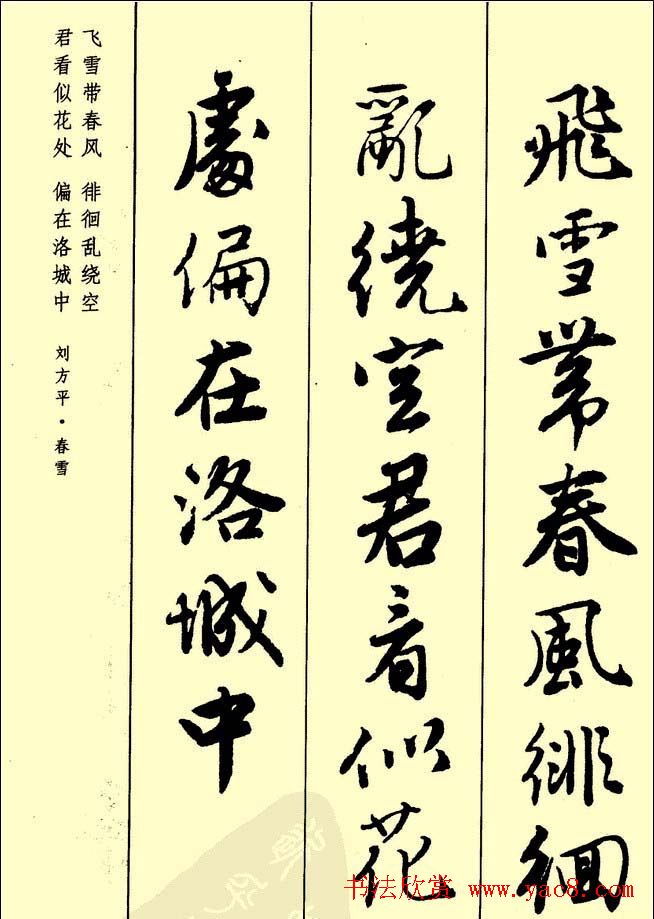 飛雪帶春風徘徊
亂繞空君看似花
處偏在洛城中
飞雪带春风 徘徊乱绕空
君看似花处 偏在洛城中
刘方平·春雪
书法欣赏 www.yac8.com